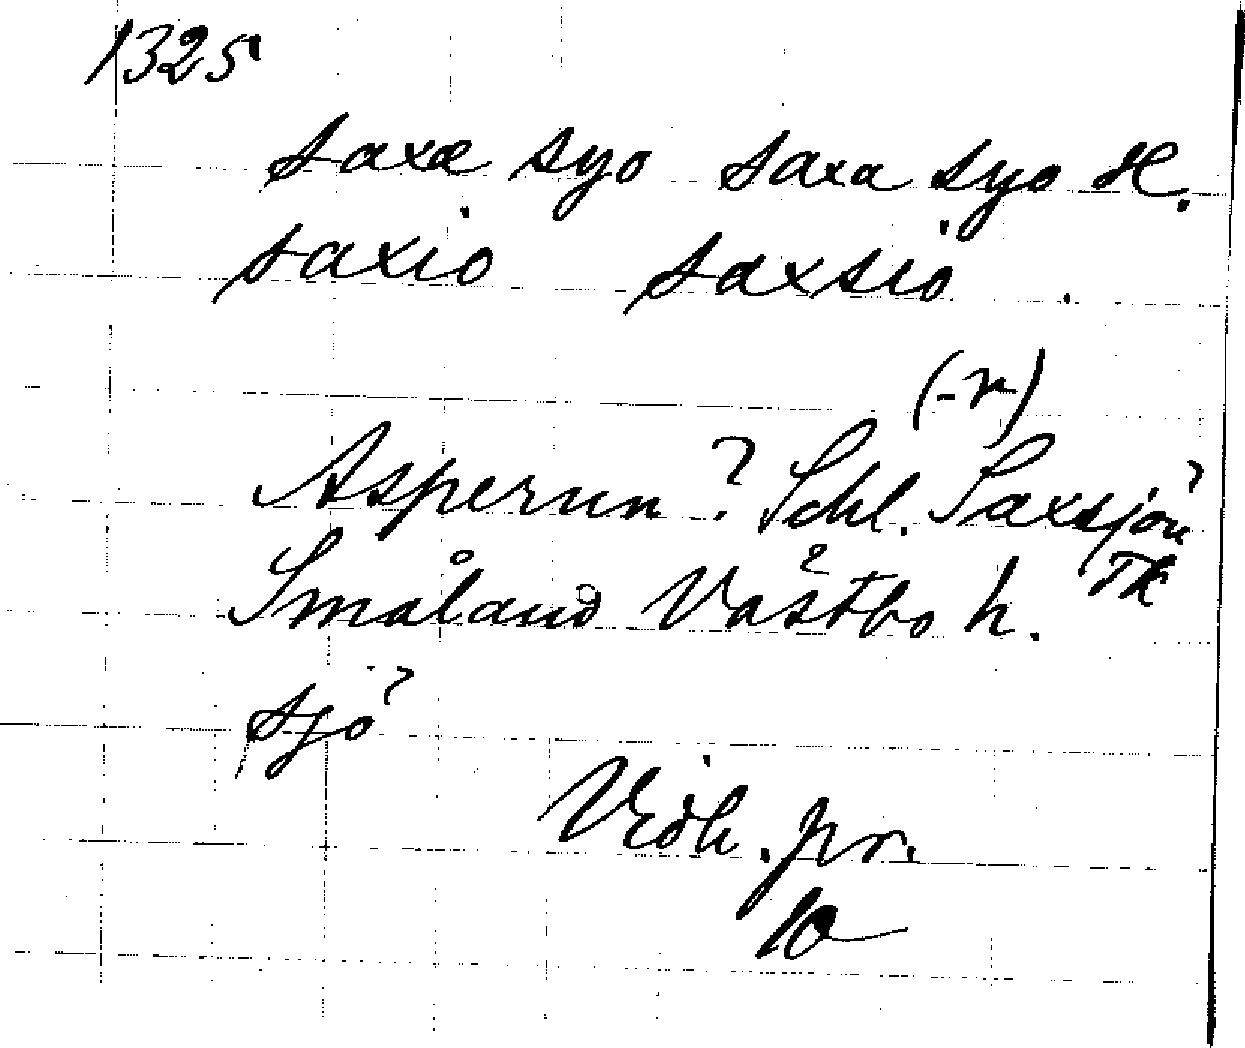 1325
saxæ syo saxa syo H.
saxiö saxsiö
(-n)
Asperun? Schl. Saxsjön
TK
Småland Västbo h.
sjö
Vidh. pr.
10